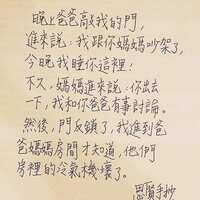 晚上爸爸敲我的門，
進來說：我跟你媽媽吵架了，
今晚我睡你這裡！
不久，媽媽進來說：你出去
一下，我和你爸爸有事討論。
然後，門反鎖了，我進到爸
爸媽媽房間才知道，他們
房裡的冷氣機壞了。
思賢手抄